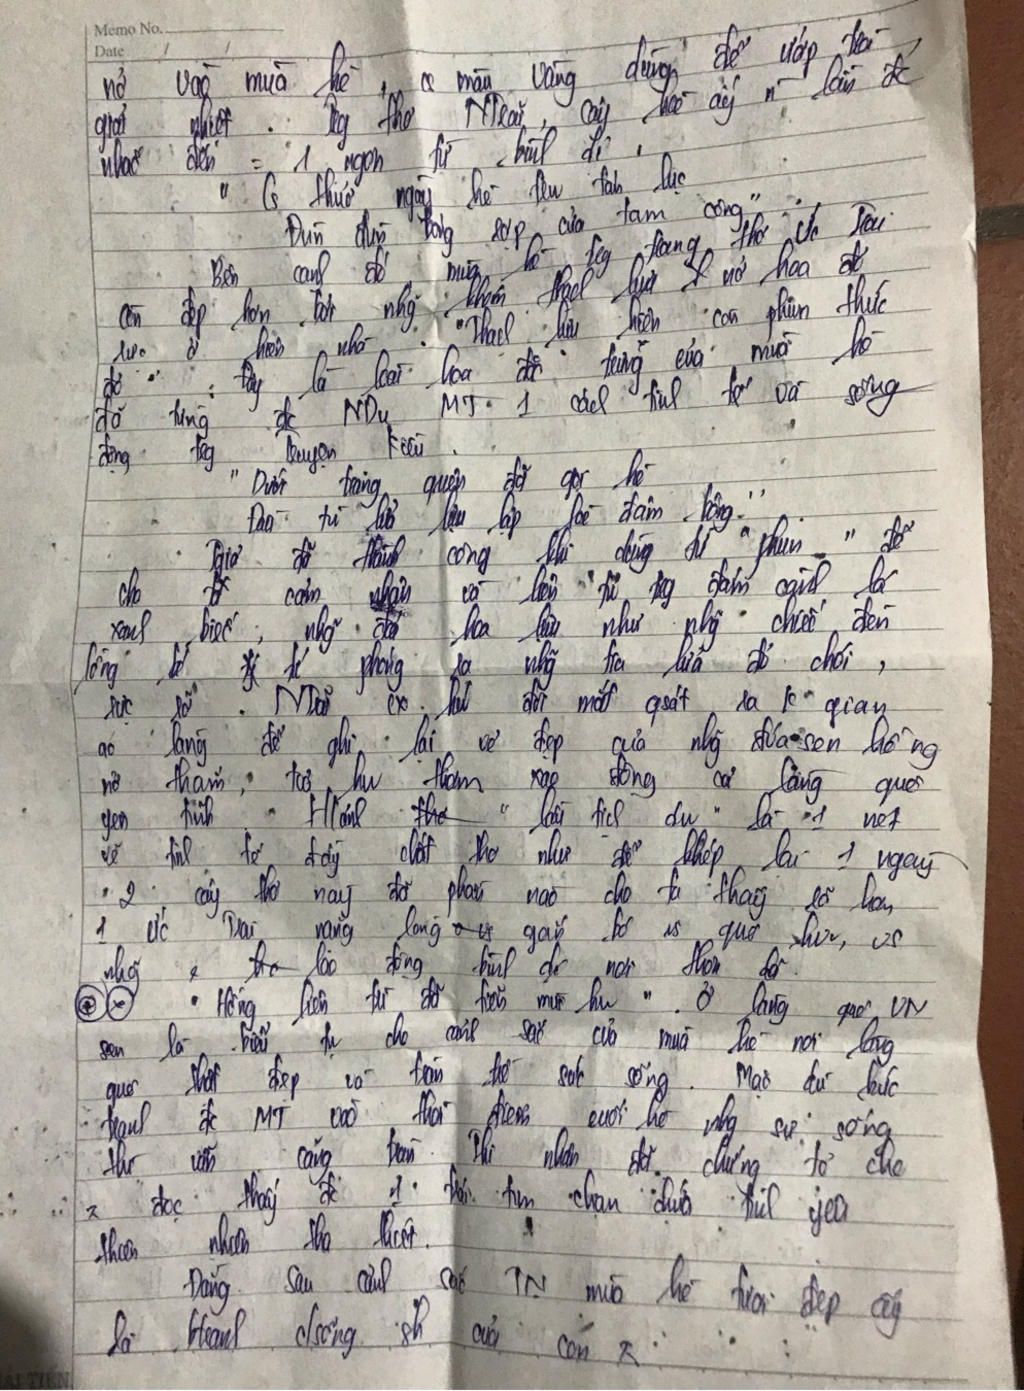 Memo No.
Date / /
nở vào mùa hè, có màu vàng dùng để ướp trà
giải nhiệt. Trg thơ NTrãi, cây hoè ấy n lần đc
nhắc đến = 1 ngôn từ bình dị.
" Có thuở ngày hè tên tán lục
Đùn đùn bóng rợp của tam công".
Bên cạnh đó mùa hè trg trang thơ Ức Trai
còn đẹp hơn bởi nhg khóm thạch lựu nở hoa đỏ
rực ở hiên nhà. "Thạch lựu hiên còn phun thức
đỏ". Đây là loài hoa đặc trưng của mùa hè
đã từng đc NDu MT 1 cách tinh tế và sống
động trg Truyện Kiều.
"Dưới trăng quyên đã gọi hè
Đầu tường lửa lựu lập loè đâm bông."
Tgiả đã thành công khi dùng từ "phun" để
cho ta cảm nhận và liên từ trg đám cành lá
xanh biếc, nhg đoá hoa lựu như nhg chiếc đèn
lồng phóng ra nhg tia lửa đỏ chói,
rực rỡ. NTrãi còn đôi mắt qsát ra k gian
ao làng để ghi lại vẻ đẹp của nhg đoá sen hồng
nở thắm, toả hương thơm xao động cả làng quê
yên tĩnh. Hảnh "lầu tịch dương" là 1 nét
vẽ tinh tế đầy chất thơ như để khép lại 1 ngày
2 câu thơ này đã phần nào cho ta thấy rõ hơn
1 Ức Trai nặng lòng gắn bó vs quê hương, vs
nhg lao động bình dị nơi thôn dã.
"Hồng liên trì đã tiễn mùi hương". Ở làng quê VN
sen là biểu tượng cho cảnh sắc của mùa hè nơi làng
quê thật đẹp và tràn trề sức sống. Mặc dù bức
tranh đc MT vào thời điểm cuối hè nhg sự sống
thì vẫn căng tràn. Thi nhân đã chứng tỏ cho
đọc thấy đc 1 trái tim chan chứa tình yêu
thiên nhiên tha thiết.
Đằng sau cảnh sắc TN mùa hè tươi đẹp ấy
là btranh csống sh của con